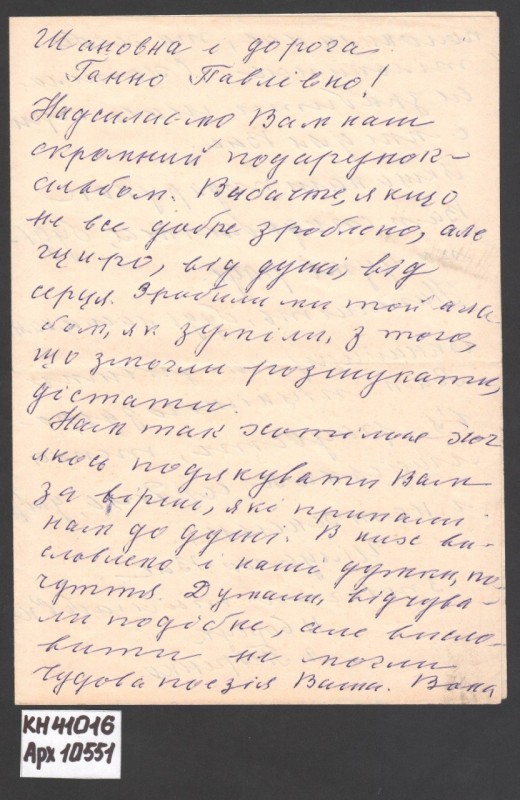 Шановна і дорога
Ганно Павлівно!
Надсилаємо Вам наш
скромний подарунок –
альбом. Вибачте, якщо
не все добре зроблено, але
щиро, від душі, від
серця. Зробили ми той аль
бом, як зуміли, з того,
що змогли розшукати,
дістати.
Нам так хотілося хоч
якось подякувати Вам
за вірші, які припали
нам до душі. В них ви-
словлено і наші думки, по-
чуття. Думали, відчува-
ли подібне, але висло-
вити не могли
Чудова поезія Ваша. Вона
КН 41016
Арх 10551